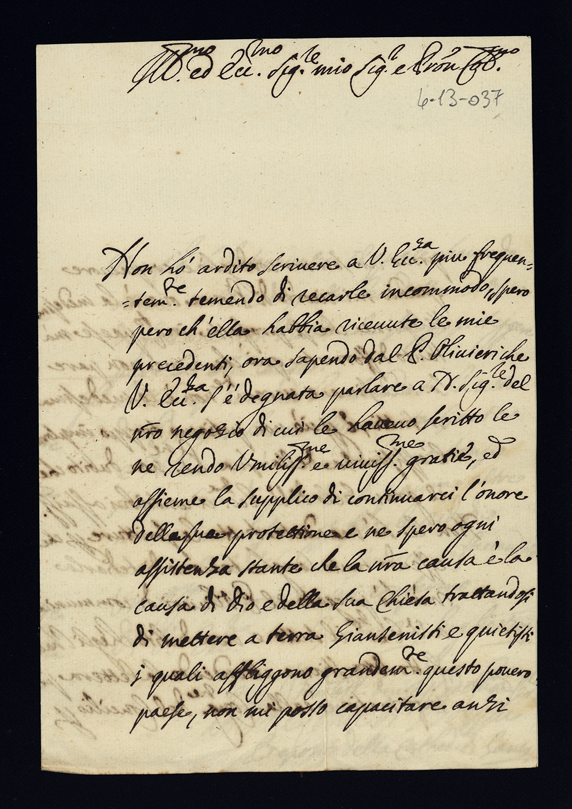 Ill.mo ed Ecc.mo Sig.re mio Sig.r e Pron Col.mo
6-13-037
Non hó ardito scriuere a V. Ecc.za piu frequen=
=tem.te temendo di recarle incommodo, spero
pero ch'ella habbia riceuute le mie
precedenti, ora sapendo dal P. Oliuieri che
V. Ecc.za s'é degnata parlare a N. Sig.re del
nro negozio di cui le haueuo scritto le
ne rendo Vmiliss.me e viuiss.me gratie, ed
assieme la supplico di continuarci l'onore
della sua protettione e ne spero ogni
assistenza stante che la nra causa é la
causa di Dio e della sua Chiesa trattandosi
di mettere a terra Giansenisti e quietisti
i quali affliggono grandem.te questo pouero
paese, non mi posso capacitare anzi